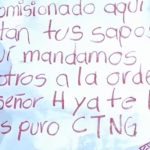 omisionado aquí
tan tus sapos
uí mandamos
otros a la orde
señor H ya te l
s puro CTNG